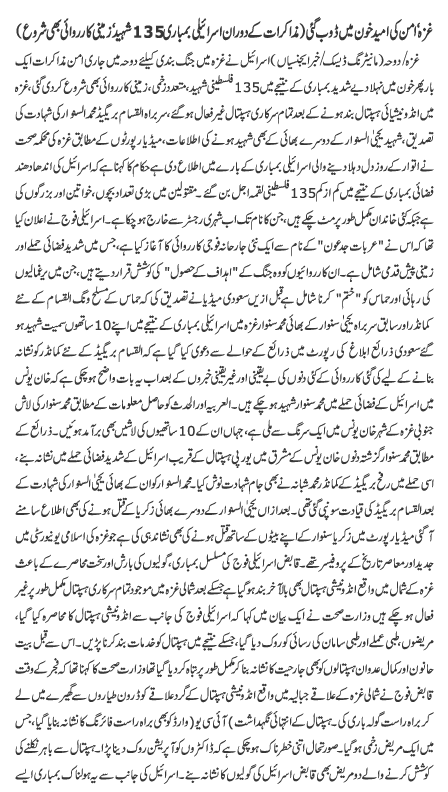 غزہ' امن کی امید خون میں ڈوب گئی (مذاکرات کے دوران اسرائیلی بمباری 135 شہید' زمینی کارروائی بھی شروع)
غزہ/دوحہ (مانیٹرنگ ڈیسک/خبر ایجنسیاں) اسرائیل نے غزہ میں جنگ بندی کیلئے دوحہ میں جاری امن مذاکرات ایک
بار پھر خون میں نہلا دیے شدید بمباری کے نتیجے میں 135 فلسطینی شہید، متعدد زخمی، زمینی کارروائی بھی شروع کر دی گئی، غزہ
میں انڈونیشیائی ہسپتال بند ہونے کے بعد تمام سرکاری ہسپتال غیر فعال ہو گئے، سربراہ القسام بریگیڈ محمد السنوار کی شہادت کی
تصدیق، شہید یحییٰ السنوار کے دوسرے بھائی کے بھی شہید ہونے کی اطلاعات، میڈیا رپورٹوں کے مطابق غزہ کی محکمہ صحت
نے اتوار کے روز دل دہلا دینے والی اسرائیلی بمباری کے بارے میں اطلاع دی ہے حکام کا کہنا ہے کہ اسرائیل کی اندھا دھند
فضائی بمباری کے نتیجے میں کم از کم 135 فلسطینی لقمہ اجل بن گئے۔ مقتولین میں بڑی تعداد بچوں، خواتین اور بزرگوں کی
ہے جبکہ کئی خاندان مکمل طور پر مٹ چکے ہیں، جن کا نام تک اب شہری رجسٹر سے خارج ہو چکا ہے۔ اسرائیلی فوج نے اعلان کیا
تھا کہ اس نے "عربات جدعون" کے نام سے ایک نئی جارحانہ فوجی کارروائی کا آغاز کیا ہے، جس میں شدید فضائی حملے اور
زمینی پیش قدمی شامل ہے۔ ان کارروائیوں کو وہ جنگ کے "اہداف کے حصول" کی کوشش قرار دیتے ہیں، جن میں یرغمالیوں
کی رہائی اور حماس کو "ختم" کرنا شامل ہے قبل ازیں سعودی میڈیا نے تصدیق کی کہ حماس کے مسلح ونگ القسام کے نئے
کمانڈر اور سابق سربراہ یحییٰ سنوار کے بھائی محمد سنوار غزہ میں اسرائیلی بمباری کے نتیجے میں اپنے 10 ساتھوں سمیت شہید ہو
گئے سعودی ذرائع ابلاغ کی رپورٹ میں ذرائع کے حوالے سے دعویٰ کیا گیا ہے کہ القسام بریگیڈ کے نئے کمانڈر کو نشانہ
بنانے کے لیے کی گئی کارروائی کے کئی دنوں کی بے یقینی اور غیر یقینی خبروں کے بعد اب یہ بات واضح ہو چکی ہے کہ خان یونس
میں اسرائیل کے فضائی حملے میں محمد سنوار شہید ہو چکے ہیں۔ العربیہ اور الحدث کو حاصل معلومات کے مطابق محمد سنوار کی لاش
جنوبی غزہ کے شہر خان یونس میں ایک سرنگ سے ملی ہے، جہاں ان کے 10 ساتھیوں کی لاشیں بھی برآمد ہوئیں۔ ذرائع کے
مطابق محمد سنوار گزشتہ دنوں خان یونس کے مشرق میں یورپی ہسپتال کے قریب اسرائیل کے شدید فضائی حملے میں نشانہ بنے،
اسی حملے میں رفح بریگیڈ کے کمانڈر محمد شبانہ نے بھی جام شہادت نوش کیا۔ محمد السنوار کو ان کے بھائی یحییٰ السنوار کی شہادت کے
بعد القسام بریگیڈ کی قیادت سونپی گئی تھی۔ بعد ازاں یحییٰ السنوار کے دوسرے بھائی زکریا کے قتل ہونے کی بھی اطلاع سامنے
آ گئی میڈیا رپورٹ میں زکریا سنوار کے اپنے بیٹوں کے ساتھ قتل ہونے کی بھی نشاندہی کی ہے جو غزہ کی اسلامی یونیورسٹی میں
جدید اور معاصر تاریخ کے پروفیسر تھے۔ قابض اسرائیلی فوج کی مسلسل بمباری، گولیوں کی بارش اور سخت محاصرے کے باعث
غزہ کے شمال میں واقع انڈونیشی ہسپتال بھی بالآخر بند ہو گیا ہے جسکے بعد شمالی غزہ میں موجود تمام سرکاری ہسپتال مکمل طور پر غیر
فعال ہو چکے ہیں وزارت صحت نے ایک بیان میں کہا کہ اسرائیلی فوج کی جانب سے انڈونیشی ہسپتال کا محاصرہ کیا گیا،
مریضوں، طبی عملے اور طبی سامان کی رسائی کو روک دیا گیا، جسکے نتیجے میں ہسپتال کو خدمات بند کرنا پڑیں۔ اس سے قبل بیت
حانون اور کمال عدوان ہسپتالوں کو بھی جارحیت کا نشانہ بنا کر مکمل طور پر تباہ کر دیا گیا تھا وزارت صحت کا کہنا تھا کہ فجر کے وقت
قابض فوج نے شمالی غزہ کے علاقے جبالیہ میں واقع انڈونیشی ہسپتال کے گرد علاقے کو ڈرون طیاروں سے گھیرے میں لے
کر براہ راست گولہ باری کی۔ ہسپتال کے انتہائی نگہداشت (آئی سی یو) وارڈ کو بھی براہ راست فائرنگ کا نشانہ بنایا گیا، جس
میں ایک مریض زخمی ہو گیا۔ صورتحال اتنی خطرناک ہو چکی ہے کہ ڈاکٹروں کو آپریشن روک دینا پڑا۔ ہسپتال سے باہر نکلنے کی
کوشش کرنے والے دو مریض بھی قابض اسرائیل کی گولیوں کا نشانہ بنے۔ اسرائیل کی جانب سے یہ ہولناک بمباری ایسے